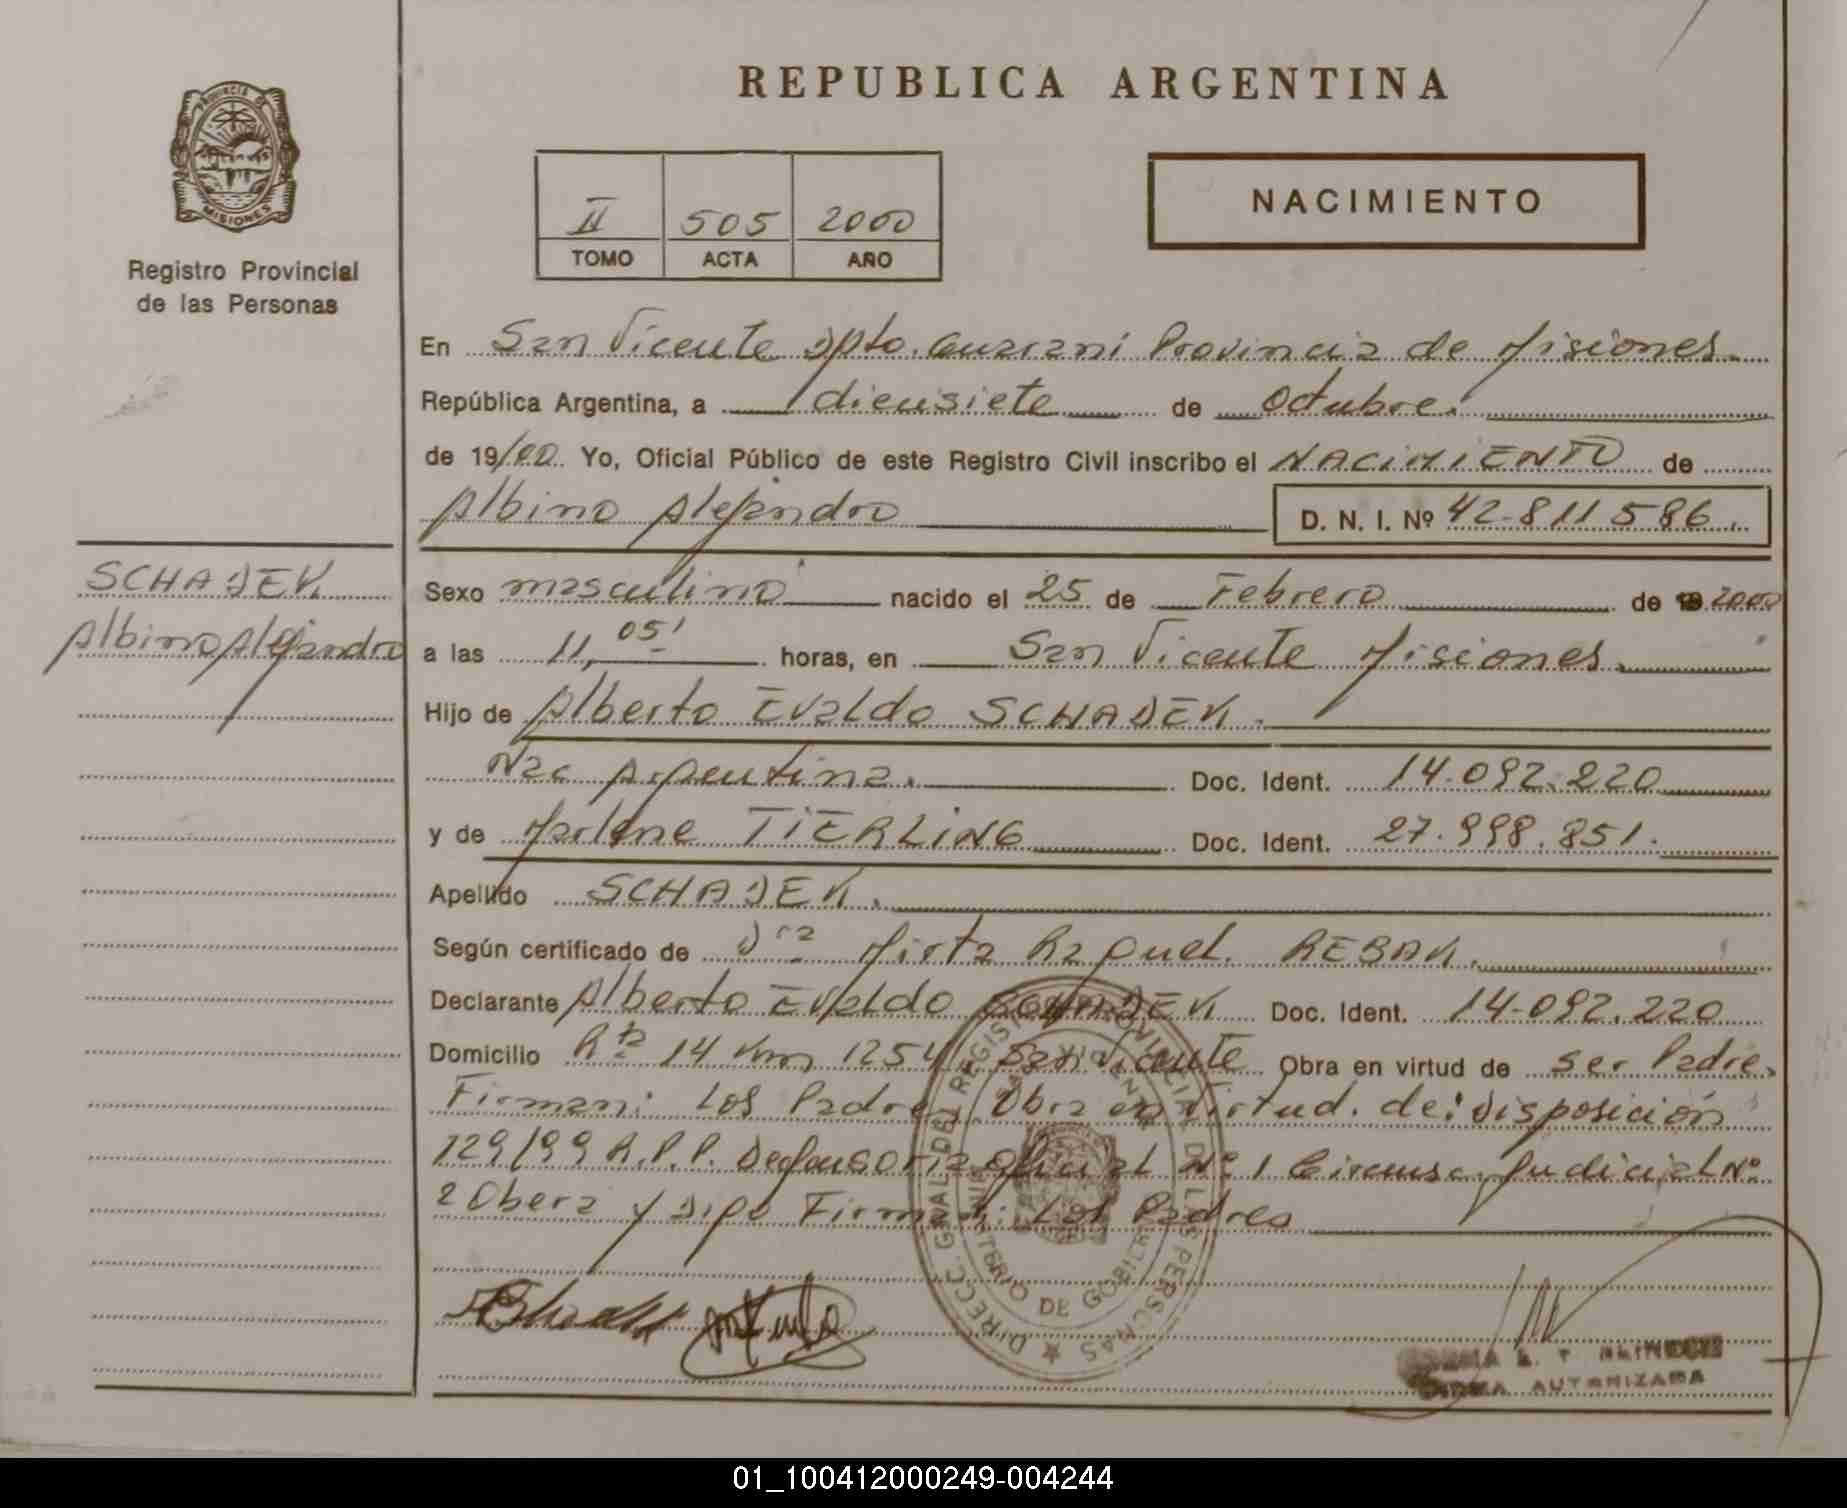 PROVINCIA DE
MISIONES
Registro Provincial
de las Personas
SCHADEK
Albino Alejandro
REPUBLICA ARGENTINA
II 505 2000
TOMO ACTA AÑO
NACIMIENTO
En San Vicente Dpto. Guarani Provincia de Misiones
República Argentina, a diecisiete de Octubre.
de 19/00 Yo, Oficial Público de este Registro Civil inscribo el NACIMIENTO de
Albino Alejandro D. N. I. Nº 42.811586.
Sexo masculino nacido el 25 de Febrero de 2000
a las 11,05' horas, en San Vicente Misiones.
Hijo de Alberto Evaldo SCHADEK.
Nac Argentina. Doc. Ident. 14.092.220
y de Marlene TIERLING Doc. Ident. 27.998.851.
Apellido SCHADEK.
Según certificado de Dra Mirta Raquel. REBAK.
Declarante Alberto Evaldo SCHADEK Doc. Ident. 14.092.220
Domicilio Rta 14 Km 1254 San Vicente Obra en virtud de ser Padre.
Firman: Los Padres Obra en virtud. de: Disposición
129/99 R.P.P. Defensoria oficial Nº 1 Circunsc. Judicial Nº
2 Obera y Digo Firman: Los Padres
DIRECC. GRAL. DEL REGISTRO PROVINCIAL DE LAS PERSONAS
SAN VICENTE
MINISTERIO DE GOBIERNO
FIRMA AUTORIZADA
01_100412000249-004244